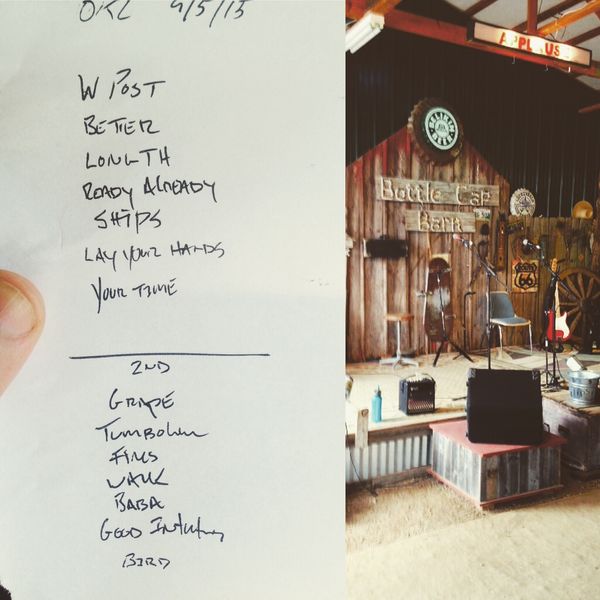 OKL 9/5/15
W POST
BETTER
LONG TH
READY ALREADY
SHIPS
LAY YOUR HANDS
YOUR TIME
2ND
GRAPE
FINS
WALK
BABA
GOOD
BIRD
APPLAUSE
Bottle Cap
Barn
ROUTE
66